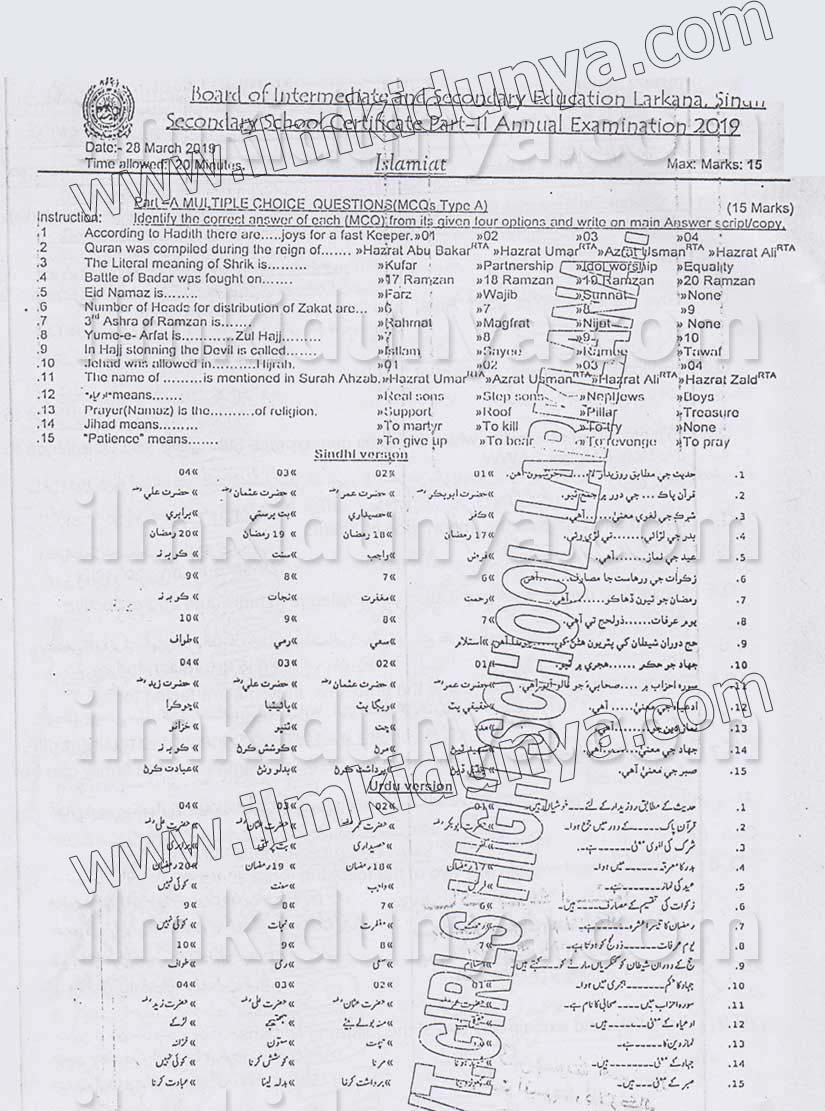 Board of Intermediate and Secondary Education Larkana, Sindh
Secondary School Certificate Part-II Annual Examination 2019
Date:- 28 March 2019
Time allowed: 20 Minutes. Islamiat Max: Marks: 15
Part-A MULTIPLE CHOICE QUESTIONS(MCQs Type A) (15 Marks)
Instruction: Identify the correct answer of each (MCQ) from its given four options and write on main Answer script/copy.
.1 According to Hadith there are.....joys for a fast Keeper. »01 »02 »03 »04
.2 Quran was compiled during the reign of...... »Hazrat Abu Bakar RTA »Hazrat Umar RTA »Azrat Usman RTA »Hazrat Ali RTA
.3 The Literal meaning of Shrik is......... »Kufar »Partnership »Idol worship »Equality
.4 Battle of Badar was fought on....... »17 Ramzan »18 Ramzan »19 Ramzan »20 Ramzan
.5 Eid Namaz is........ »Farz »Wajib »Sunnat »None
.6 Number of Heads for distribution of Zakat are... »6 »7 »8 »9
.7 3rd Ashra of Ramzan is....... »Rahmat »Magfrat »Nijat »None
.8 Yume-e- Arfat is............ Zul Hajj......... »7 »8 »9 »10
.9 In Hajj stonning the Devil is called....... »Istlam »Sayee »Ramee »Tawaf
.10 Jehad was allowed in..........Hijrah. »01 »02 »03 »04
.11 The name of .........is mentioned in Surah Ahzab. »Hazrat Umar RTA »Azrat Usman RTA »Hazrat Ali RTA »Hazrat Zaid RTA
.12 means....... »Real sons »Step sons »Nephews »Boys
.13 Prayer(Namaz) is the..........of religion. »Support »Roof »Pillar »Treasure
.14 Jihad means......... »To martyr »To kill »To try »None
.15 "Patience" means....... »To give up »To bear »To revenge »To pray
Sindhi version
.1 حديث جي مطابق روزيدار لاءِ خوشيون آهن. »01 »02 »03 »04
.2 قرآن پاڪ ... جي دور ۾ جمع ٿيو. »حضرت ابوبڪر »حضرت عمر »حضرت عثمان »حضرت علي
.3 شرڪ جي لغوي معنيٰ ... آهي. »ڪفر »حصيداري »بت پرستي »برابري
.4 بدر جي لڙائي ... تي لڙي وئي. »17 رمضان »18 رمضان »19 رمضان »20 رمضان
.5 عيد جي نماز ... آهي. »فرض »واجب »سنت »ڪو به نہ
.6 زڪوات جي ورهاست جا مصارف ... آهن. »6 »7 »8 »9
.7 رمضان جو ٽيون ڏهاڪو ... آهي. »رحمت »مغفرت »نجات »ڪو به نہ
.8 يوم عرفات ... ذوالحج تي آهي. »7 »8 »9 »10
.9 حج دوران شيطان کي پٿريون هڻڻ کي »استلام »سعي »رمي »طواف
.10 جهاد جو حڪم ... هجري ۾ ٿيو. »01 »02 »03 »04
.11 سوره احزاب ۾ ... صحابي جو نالو آيو آهي. »حضرت عمر »حضرت عثمان »حضرت علي »حضرت زيد
.12 ادعياء جي معنيٰ ... آهي. »حقيقي پٽ »ويڳا پٽ »ڀائيٽيا »ڇوڪرا
.13 نماز دين جي ... آهي. »مدد »ڇت »ٿنڀو »خزانو
.14 جهاد جي معنيٰ ... آهي. »شهيد ٿيڻ »مرڻ »ڪوشش ڪرڻ »ڪو به نہ
.15 صبر جي معنيٰ آهي. »برداشت ڪرڻ »بدلو وٺڻ »عبادت ڪرڻ
Urdu version
.1 حدیث کے مطابق روزیدار کے لئے ۔۔۔ خوشیاں ہیں۔ »01 »02 »03 »04
.2 قرآن پاک ۔۔۔ کے دور میں جمع ہوا۔ »حضرت ابوبکر »حضرت عمر »حضرت عثمان »حضرت علی
.3 شرک کی لغوی معنیٰ ۔۔۔ ہے۔ »کفر »حصیداری »بت پرستی »برابری
.4 بدر کا معرکہ ۔۔۔ میں ہوا۔ »17 رمضان »18 رمضان »19 رمضان »20 رمضان
.5 عید کی نماز ۔۔۔ ہے۔ »فرض »واجب »سنت »کوئی نہیں
.6 زکوات کی تقسیم کے مصارف ۔۔۔ ہیں۔ »6 »7 »8 »9
.7 رمضان کا تیسرا عشرہ ۔۔۔ ہے۔ »رحمت »مغفرت »نجات »کوئی نہیں
.8 یوم عرفات ۔۔۔ ذوالحج کو ہوتا ہے۔ »7 »8 »9 »10
.9 حج کے دوران شیطان کو کنکریاں مارنے کو ۔۔۔ کہتے ہیں۔ »استلام »سعی »رمی »طواف
.10 جہاد کا حکم ۔۔۔ ہجری میں ہوا۔ »01 »02 »03 »04
.11 سورہ احزاب میں ۔۔۔ صحابی کا نام ہے۔ »حضرت عمر »حضرت عثمان »حضرت علی »حضرت زید
.12 ادعیاء کے معنیٰ ۔۔۔ ہیں۔ »منہ بولے بیٹے »بھتیجے »لڑکے
.13 نماز دین کا ۔۔۔ ہے۔ »مدد »چھت »ستون »خزانہ
.14 جہاد کے معنیٰ ۔۔۔ ہیں۔ »شہید ہونا »مرنا »کوشش کرنا »کوئی نہیں
.15 صبر کے معنیٰ ۔۔۔ ہیں۔ »برداشت کرنا »بدلہ لینا »عبادت کرنا
GIRLS HIGH SCHOOL LARKANA
www.ilmkidunya.com
www.ilmkidunya.com
ilmkidunya.com
ilmkidunya.com
ilmkidunya.com
ilmkidunya.com
ilmkidunya.com